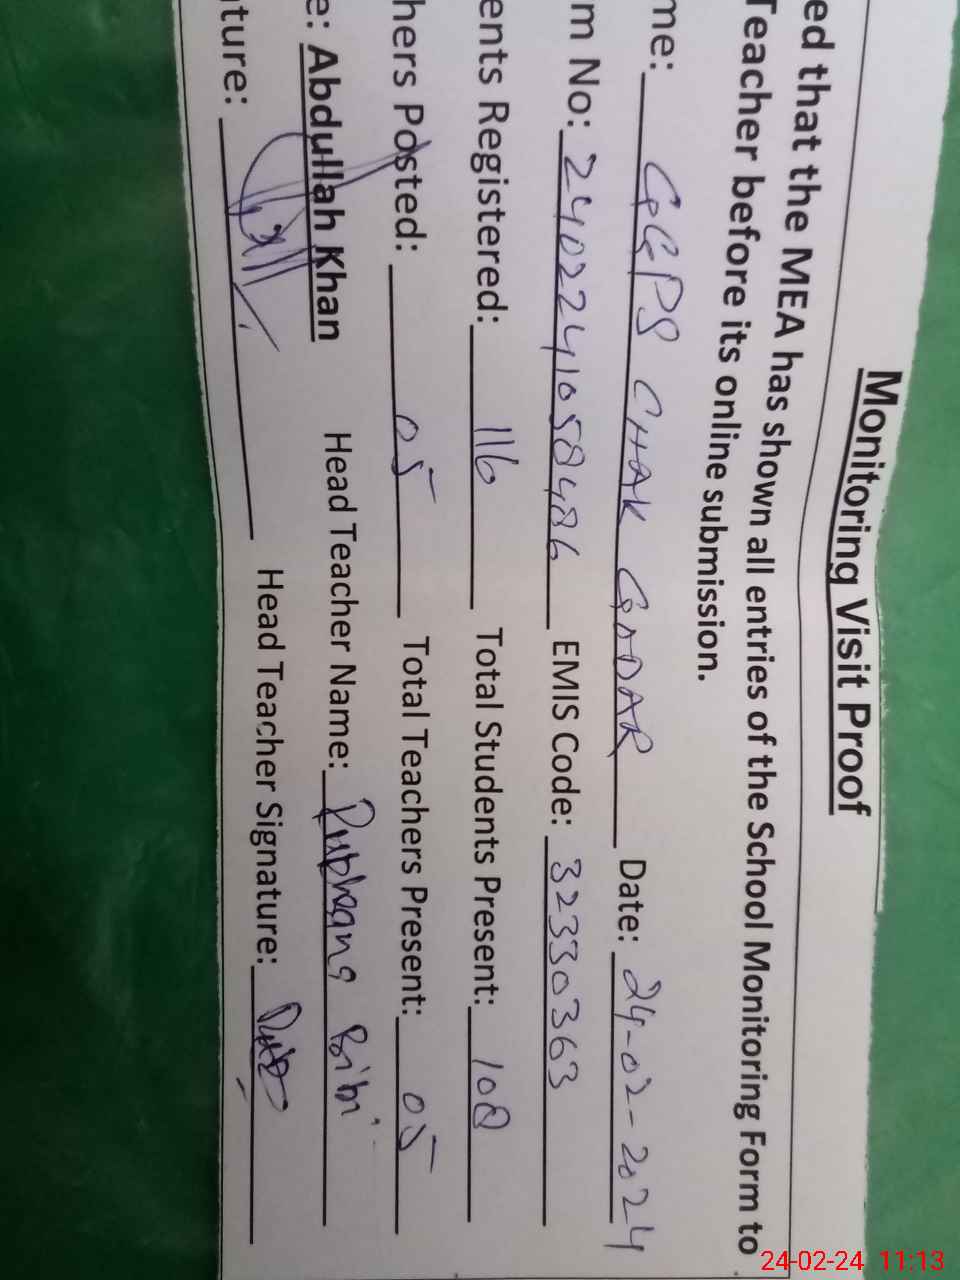 Monitoring Visit Proof
ed that the MEA has shown all entries of the School Monitoring Form to
Teacher before its online submission.
me: GGPS CHAK GODAR Date: 24-02-2024
m No: 2402241058486 EMIS Code: 32330363
ents Registered: 116 Total Students Present: 108
hers Posted: 05 Total Teachers Present: 05
e: Abdullah Khan Head Teacher Name: Rubhana Bibi
ture: Head Teacher Signature:
24-02-24 11:13